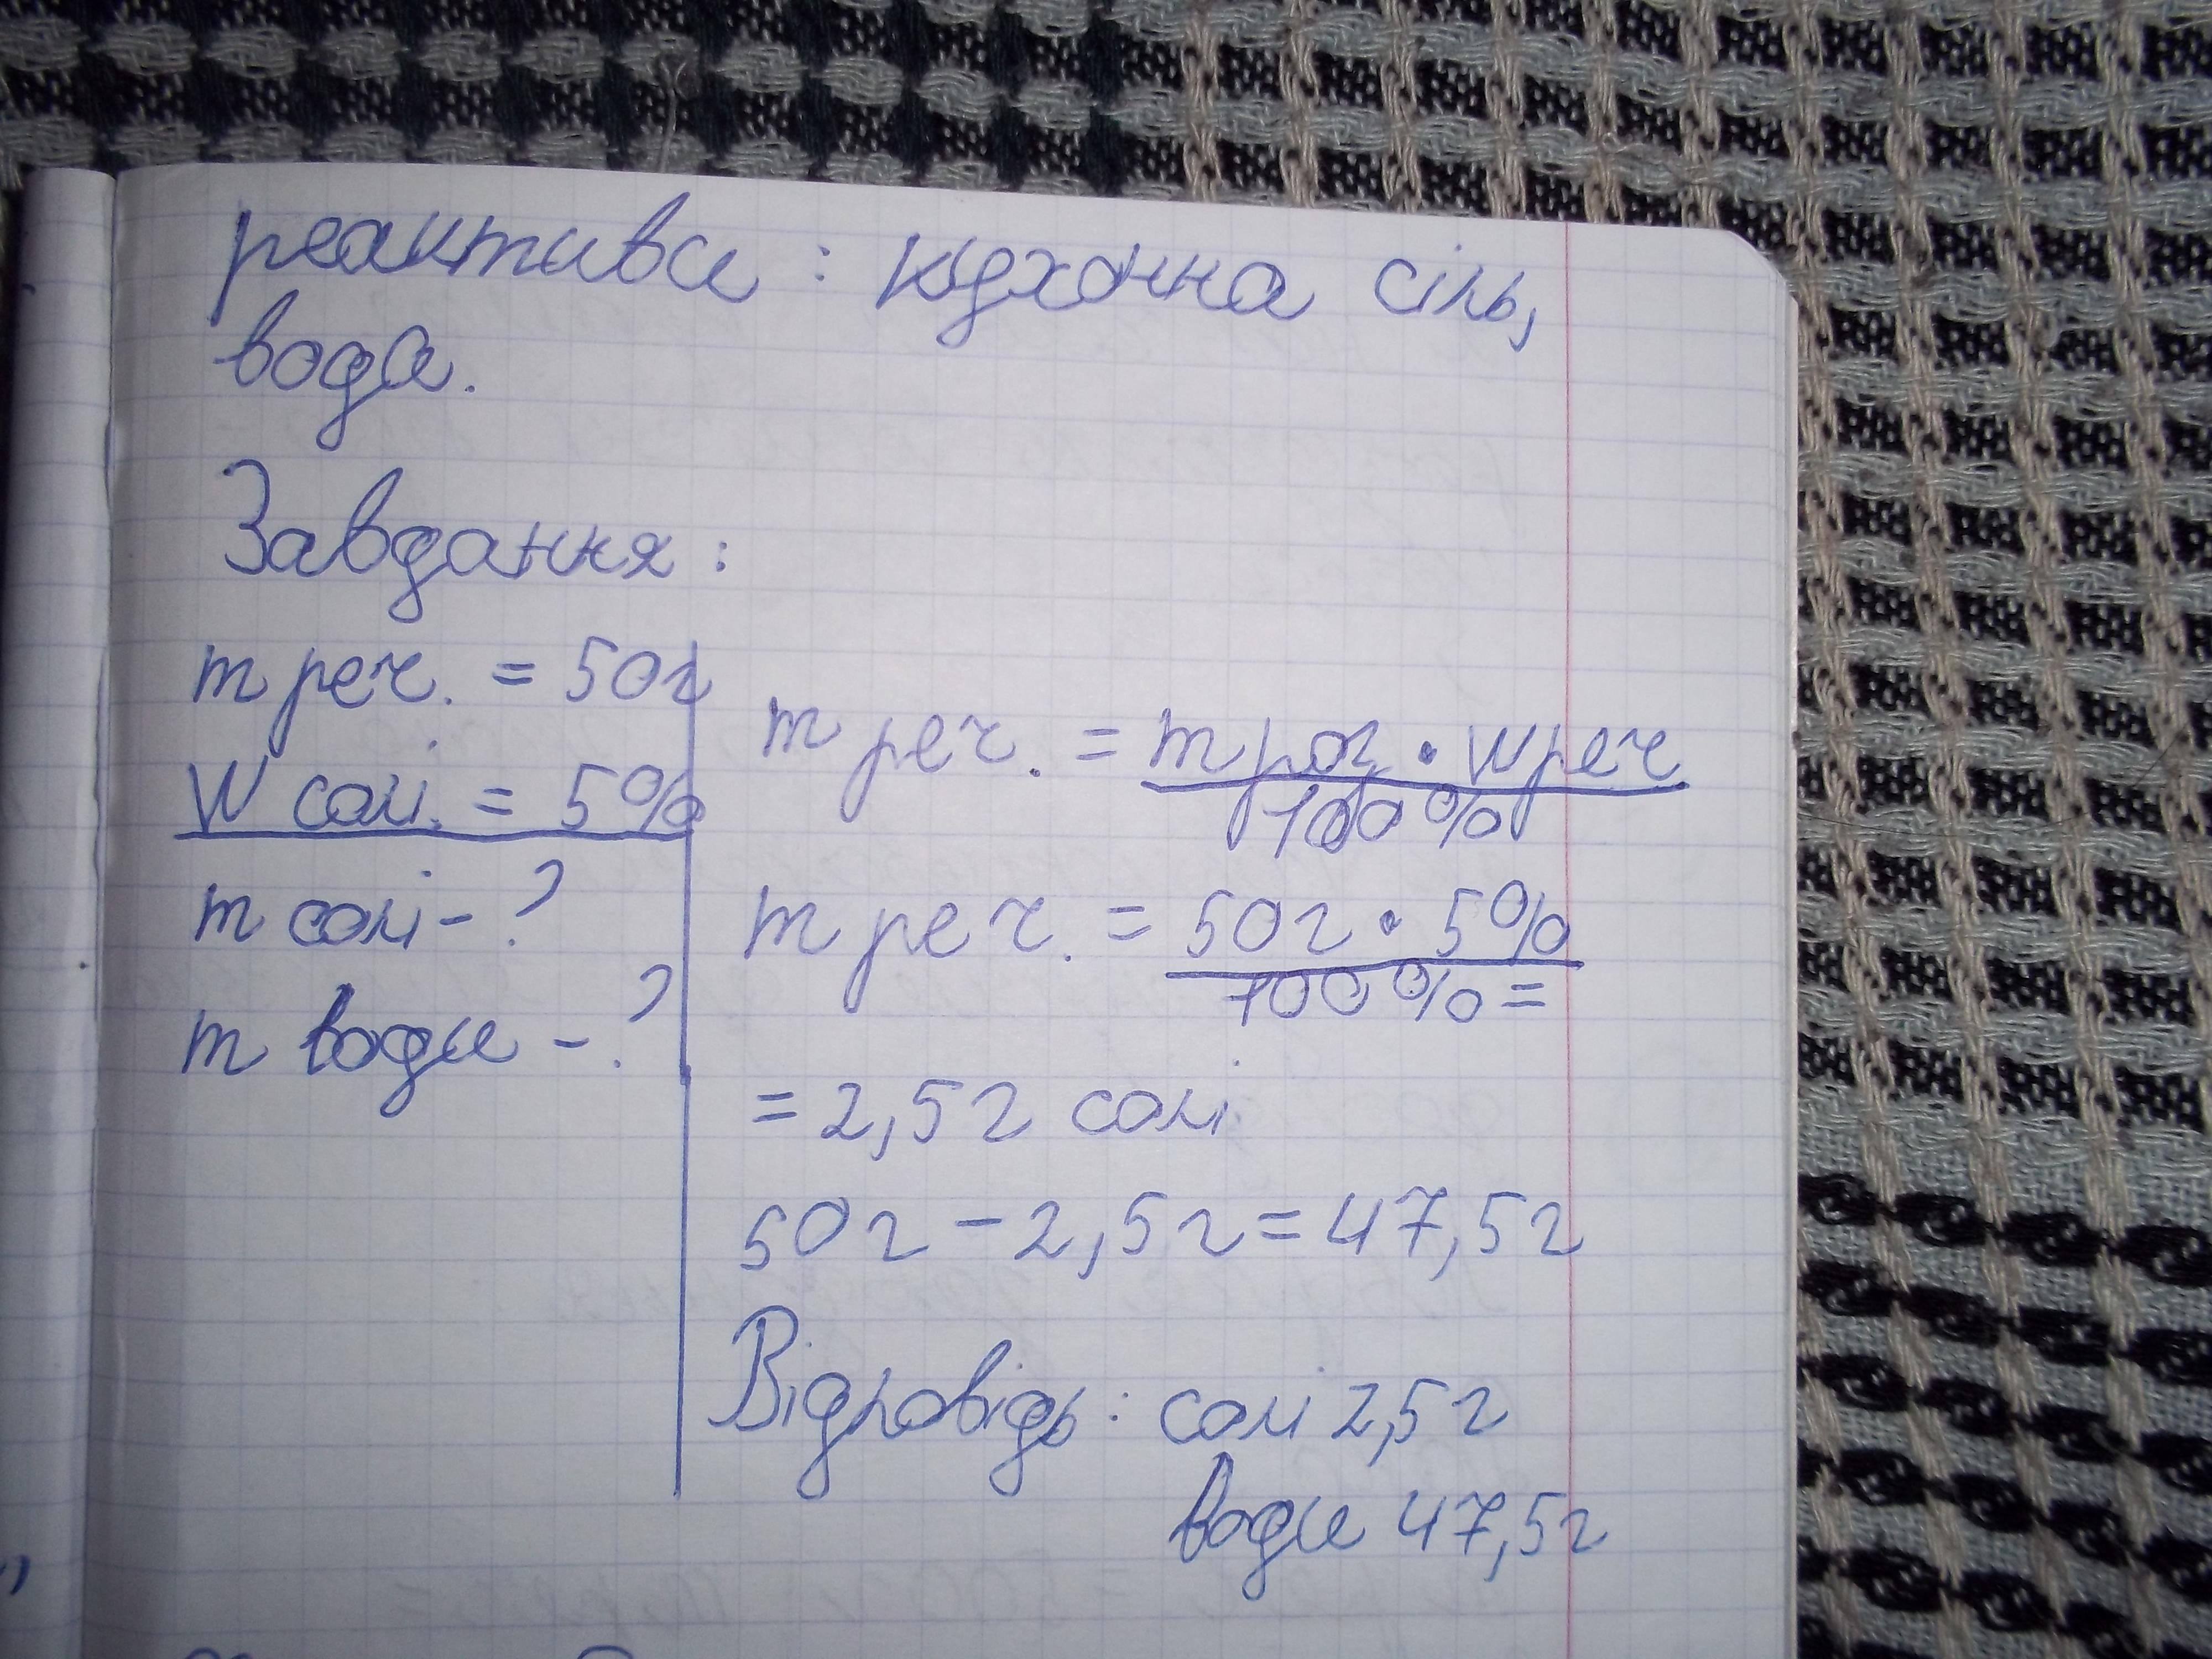 реактиви : кухонна сіль,
вода.
Завдання :
m реч. = 50г
W солі. = 5%
m солі - ?
m води - ?
m реч. = m роз. • W реч
100%
m реч. = 50г • 5%
100% =
= 2,5г солі
50г - 2,5г = 47,5г
Відповідь : солі 2,5г
води 47,5г